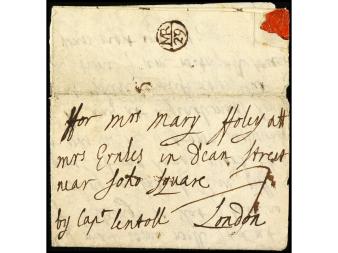 MR
29
ffor mrs mary ffoley att
mrs Ernles in Dean street
near soho square
by Capt Lentoll London